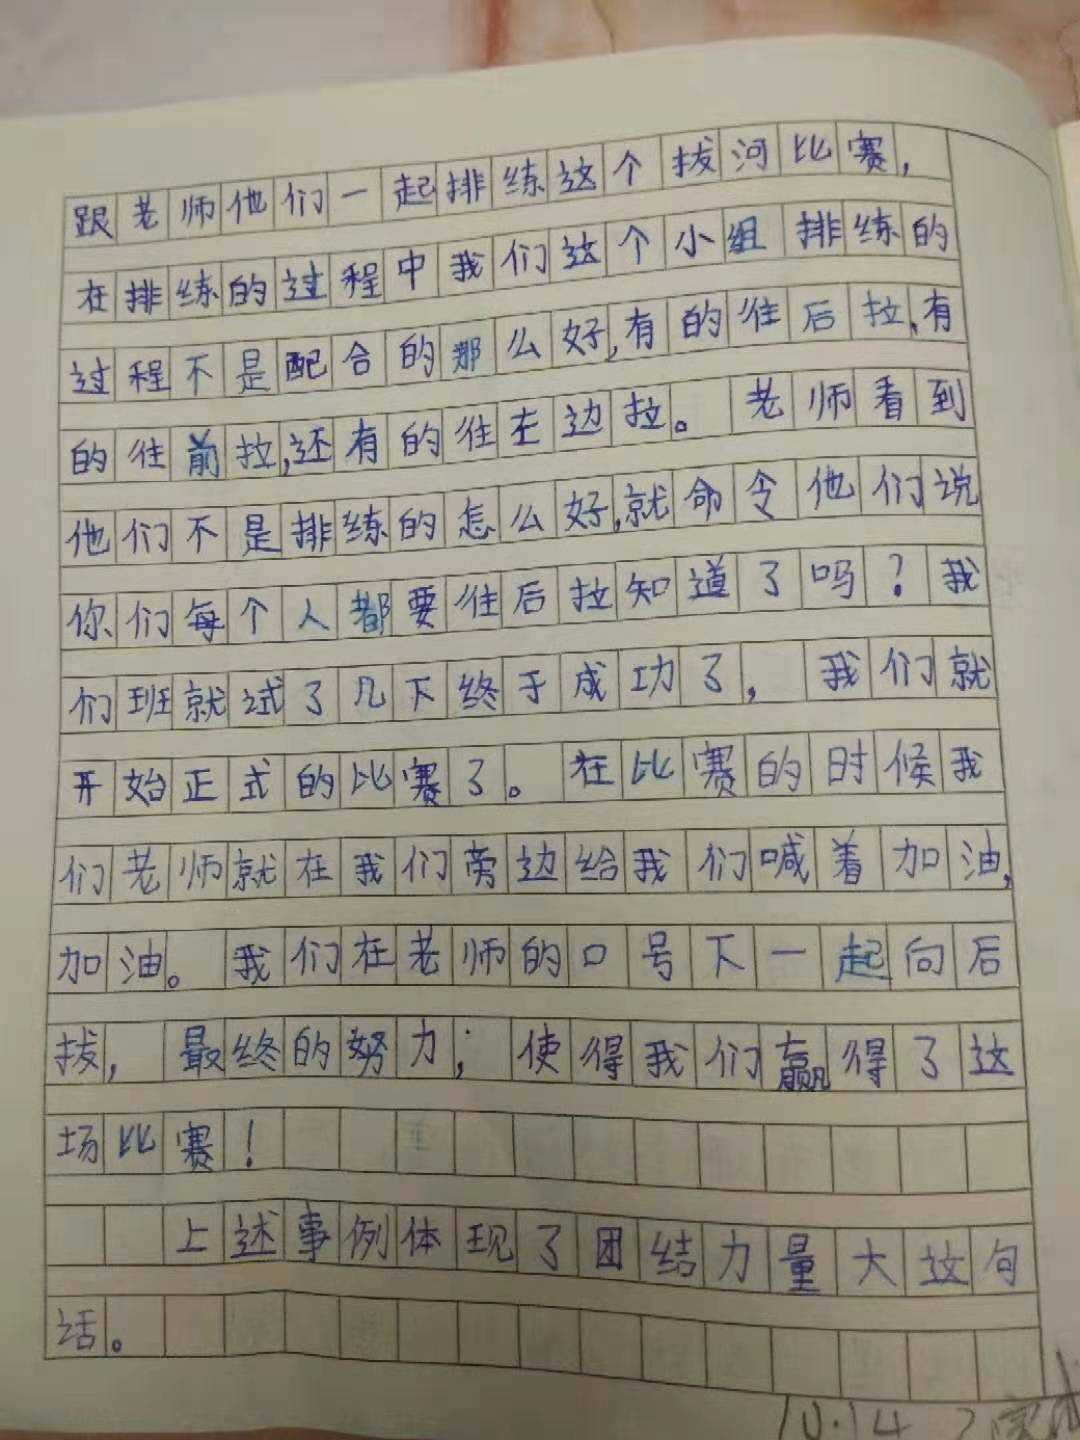 跟老师他们一起排练这个拔河比赛,
在排练的过程中我们这个小组排练的
过程不是配合的那么好,有的往后拉,有
的往前拉,还有的往左边拉。老师看到
他们不是排练的怎么好,就命令他们说
你们每个人都要往后拉知道了吗?我
们班就试了几下终于成功了,我们就
开始正式的比赛了。在比赛的时候我
们老师就在我们旁边给我们喊着加油,
加油。我们在老师的口号下一起向后
拔,最终的努力;使得我们赢得了这
场比赛!
上述事例体现了团结力量大这句
话。
10.14